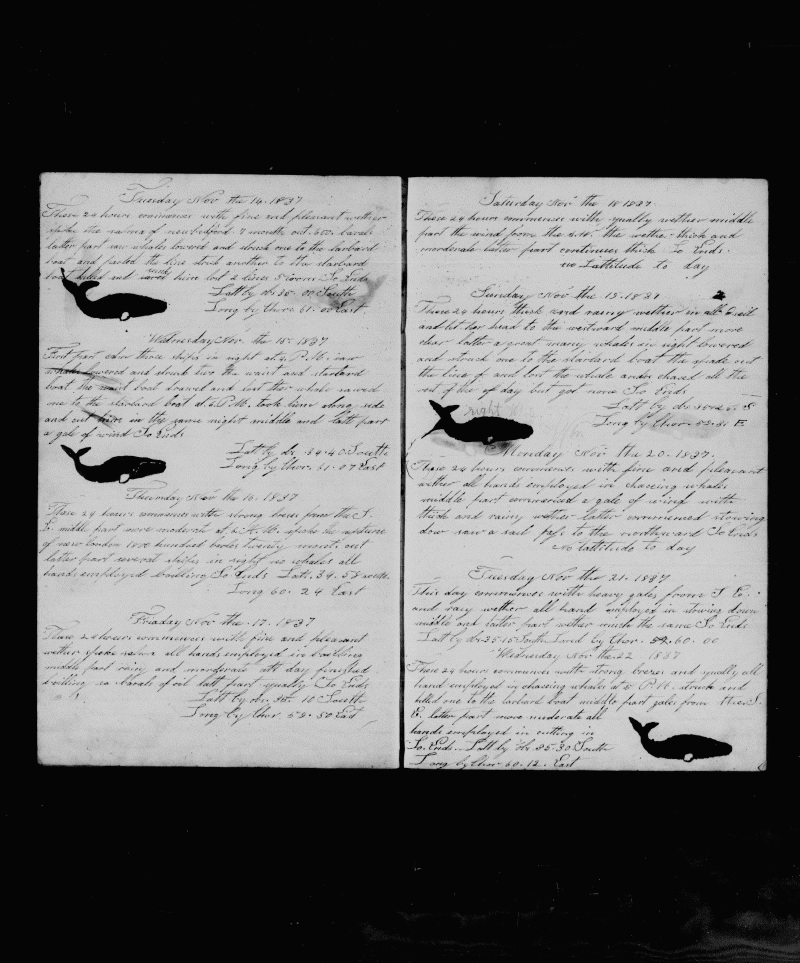 Tuesday Nov the 14. 1837
These 24 hours commences with fine and pleasant wether
spoke the of newbedford. 7 month out. 650. barels
latter part saw whales lowered and struck one to the larbard
boat and parted the line struck another to the starbard
boat killed and him lost 2 lines So Ends
Latt by dr 35. 00 South
Long by Chor. 61. 00 East
Wednesday Nov. the 15. 1837
First part saw three ships in sight at 4. P. M. saw
whales lowered and struck two the waist and starbard
boat the waist boat and lost ther whale saved
one to the starbard boat at 6. P.M. took him along side
and cut him in the same night middle and latt part
a gale of wind So Ends
Latt by dr. 34. 40 South
Long by Chor. 61. 07 East
Thursday Nov the 16. 1837
These 24 hours commences with strong brees from the S.
E. middle part more moderate at 6. A. M. spoke the
of new london hundred barles twenty months out
latter part several ships in sight no whales all
hands employed boailing So Ends Latt. 34. 58 south.
Long 60. 24 East
Friaday Nov the 17. 1837
These 24 hours commences with fine and pleasant
wether spoke all hands employed in boailing
middle part rainy and day finished
boilling barals of oil latt part So Ends
Latt by dr. 35. 10 South
Long by Chor. 59. 50 East
Saturday Nov the 18 1837.
These 24 hours commenses with wether middle
part the wind from the the wether thick and
latter part continues thick So Ends.
no Lattitude to day
Sunday Nov the 19. 1837
These 24 hours thick and rainy wether in all
and her head to the westward middle part more
clear latter a great many whales in sight lowered
and struck one to the starbard boat the spade cut
the line of and lost the whale and chased all the
rest of the of day but got none So Ends
Latt by dr S.
Long by Chor. 58. 31 E.
right
Monday Nov the 20. 1837.
These 24 hours commenses with fine and pleasant
wether all hands employed in chaseing whales
middle part commenced a gale of wind with
thick and rainy wether latter commenced stowing
down saw a sail to the northward So Ends
no lattitude to day
Tuesday Nov the 21. 1837
This day commences with heavy gales from S E.
and rany wether all hand employed in stowing down
middle and latter part wether much the same So Ends
Latt by dr. 35. 15 South Lond by Chor. 60. 00
Wednesday Nov. the 22 1837
These 24 hours commenses with strong brees and all
hand employed in chaseing whales at 5 P.M. struck and
killed one to the larbard boat middle part gales from the S.
E. latter part more moderate all
hands employed in cutting in
So. Ends. Latt by dr. 35. 30 South
Long by Chor. 60. 12. East